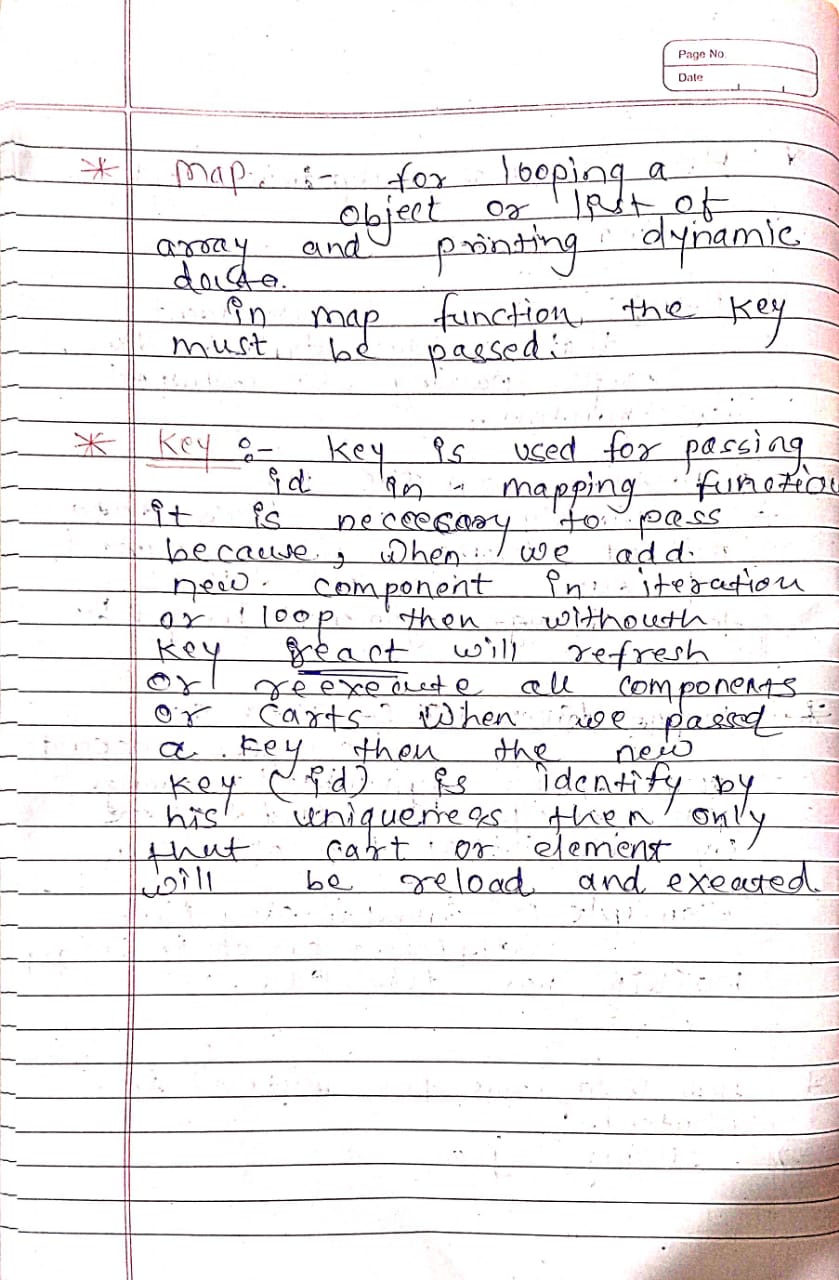 Page No.
Date
* Map :- for looping a
object or list of
array and printing dynamic
data.
in map function the key
must be passed.
* Key :- key is used for passing
id in mapping function
it is neccecary to pass
because, when we add
new component in iteration
or loop then withouth
key react will refresh
or reexecute all components
or carts when we passed
a key then the new
key (id) is identify by
his uniqueness then only
that cart or element
will be reload and